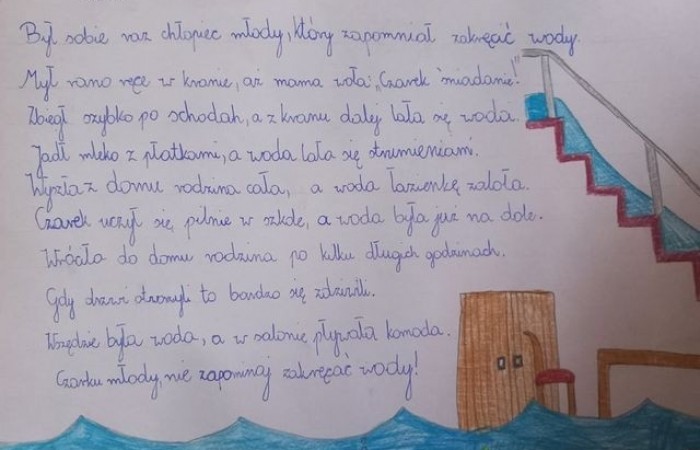 Był sobie raz chłopiec młody, który zapomniał zakręcać wody.
Mył rano ręce w kranie, aż mama woła: „Czarek śniadanie!"
Zbiegł szybko po schodah, a z kranu daley lała się woda.
Jadł mleko z płatkami, a woda lała się strumieniami.
Wyszła z domu rodzina cała, a woda łazienkę zalała.
Czarek uczył się pilnie w szkole, a woda była już na dole.
Wróciła do domu rodzina po kilku długich godzinach.
Gdy drzwi otworzyli to bardzo się zdziwili.
Wszędzie była woda, a w salonie pływała komoda.
Czarku młody, nie zapominaj zakręcać wody!